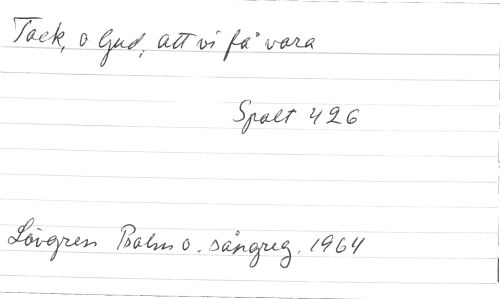 Tack, o Gud, att vi få vara
Spalt 426
Lövgren Psalm o. sångreg. 1964